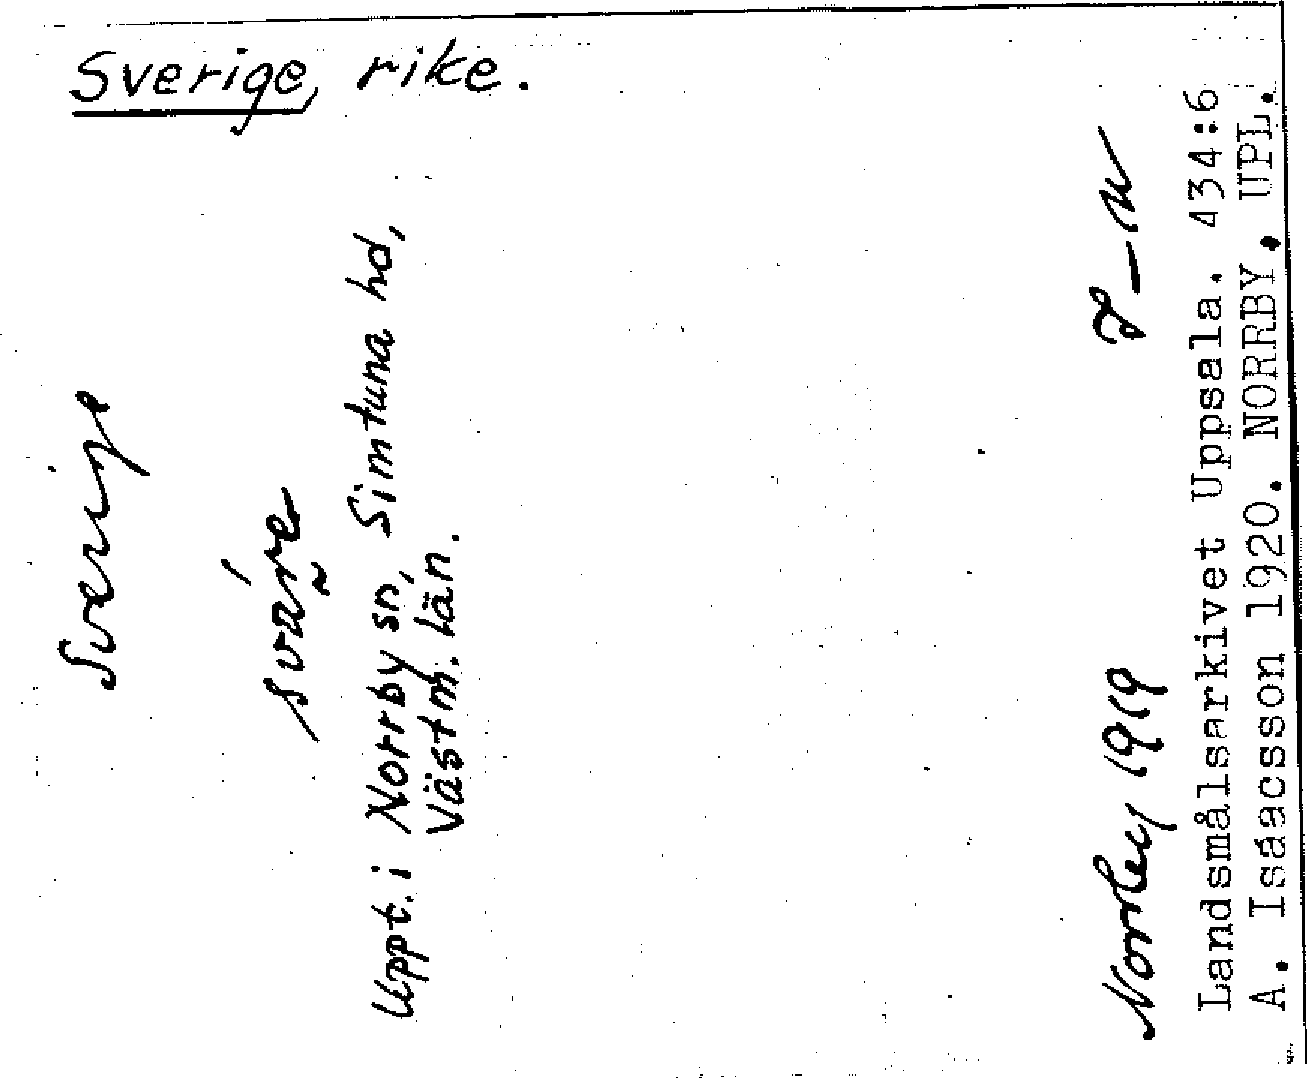 Sverige, rike.
Sverige
Uppt. i Norrby sn, Simtuna hd,
Västm. län.
Norrby 1919
Landsmålsarkivet Uppsala. 434:6
A. Isaacsson 1920. NORRBY. UPL.